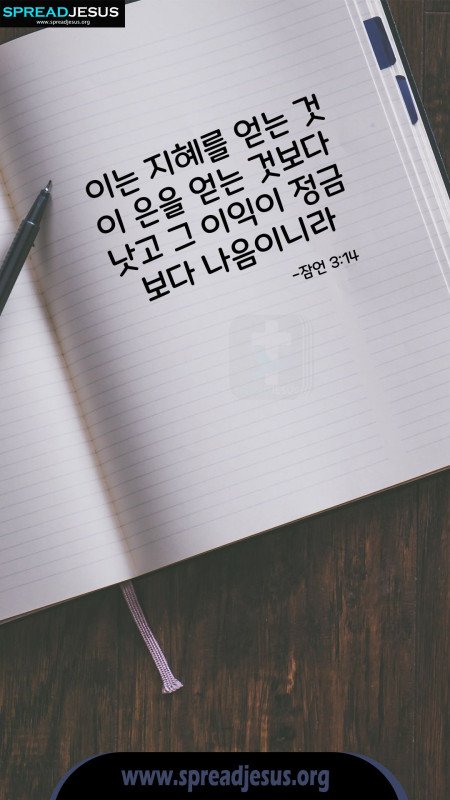 SPREADJESUS
www.spreadjesus.org
이는 지혜를 얻는 것
이 은을 얻는 것보다
낫고 그 이익이 정금
보다 나음이니라
-잠언 3:14
www.spreadjesus.org